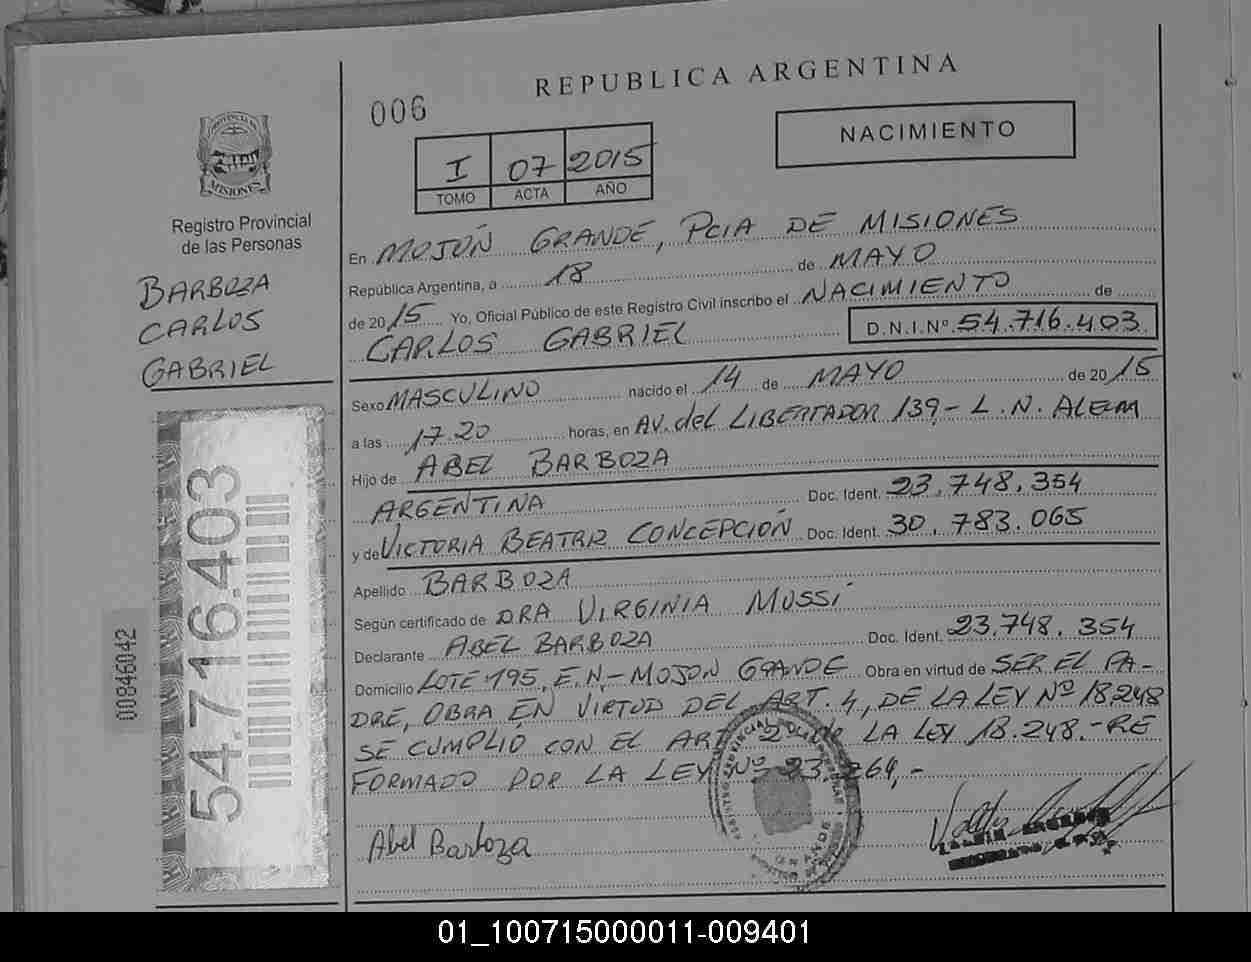 006
REPUBLICA ARGENTINA
NACIMIENTO
PROVINCIA DE
MISIONES
Registro Provincial
de las Personas
BARBOZA
CARLOS
GABRIEL
54.716.403
00846042
I 07 2015
TOMO ACTA AÑO
En MOJÓN GRANDE, PCIA DE MISIONES
República Argentina, a 18 de MAYO
de 2015 Yo, Oficial Público de este Registro Civil inscribo el NACIMIENTO de
CARLOS GABRIEL D.N.I.Nº 54.716.403
Sexo MASCULINO nacido el 14 de MAYO de 2015
a las 17.20 horas, en AV. del LIBERTADOR 139,- L. N. ALEM
Hijo de ABEL BARBOZA
ARGENTINA Doc. Ident. 23,748,354
y de VICTORIA BEATRIZ CONCEPCIÓN Doc. Ident. 30.783.065
Apellido BARBOZA
Según certificado de DRA VIRGINIA MUSSI
Declarante ABEL BARBOZA Doc. Ident. 23.748.354
Domicilio LOTE 195, E.N,- MOJON GRANDE Obra en virtud de SER EL PA-
DRE, OBRA EN VIRTUD DEL ART. 4, DE LA LEY Nº 18248
SE CUMPLIO CON EL ART 2 de LA LEY 18.248.- RE
FORMADO POR LA LEY Nº 23.264,-
Abel Barboza
01_100715000011-009401